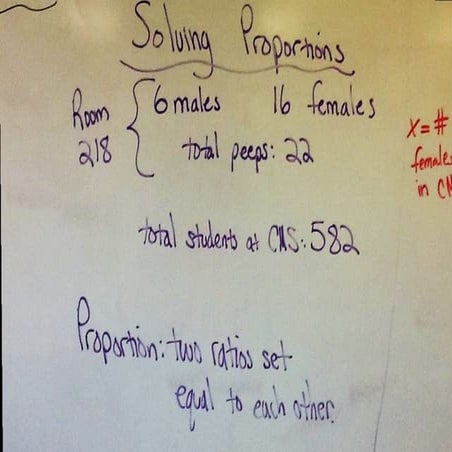 Solving Proportions
Room 218 { 6 males 16 females
total peeps: 22
x = #
females
in
total students at CMS: 582
Proportion: two ratios set
equal to each other.